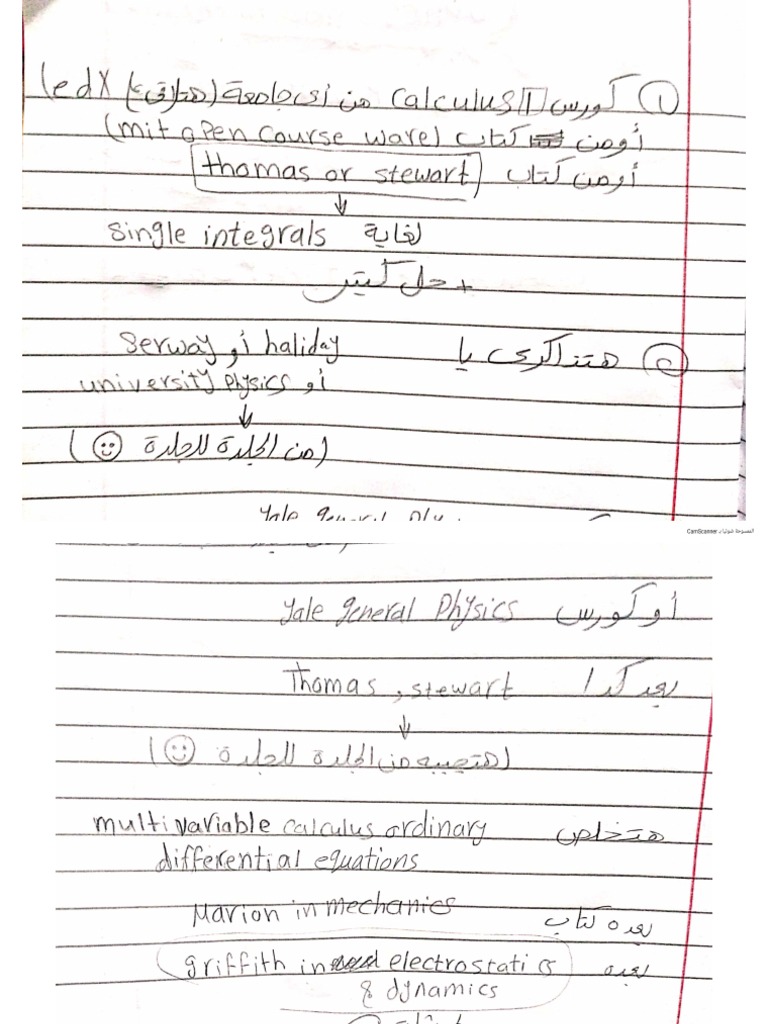 ① كورس Calculus 1 من أى جامعة (هتلاقى ع edX)
أو من كتاب (mit open course ware)
أو من كتاب (thomas or stewart)
لغاية single integrals
+ حل كتير
② هتذاكرى يا serway أو haliday
أو university physics
(من الجلدة للجلدة)
Yale general
الممسوحة ضوئيا بـ CamScanner
أو كورس Yale general Physics
بعد كدا Thomas, stewart
(هتجيبه من الجلدة للجلدة)
هتخلص multivariable calculus ordinary
differential equations
بعده كتاب Marion in mechanics
بعده griffith in electrostatics
& dynamics